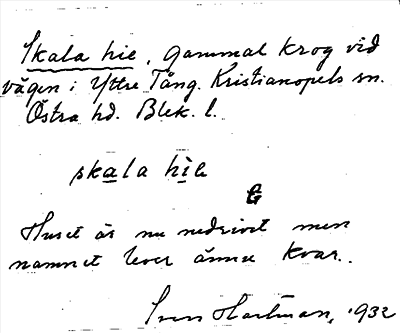 Skala hie, gammal krog vid
vägen i Yttre Tång. Kristianopels sn.
Östra hd. Blek. l.
skala hie
G
Huset är nu nedrivet men
namnet lever ännu kvar.
Sven Hartman, 1932